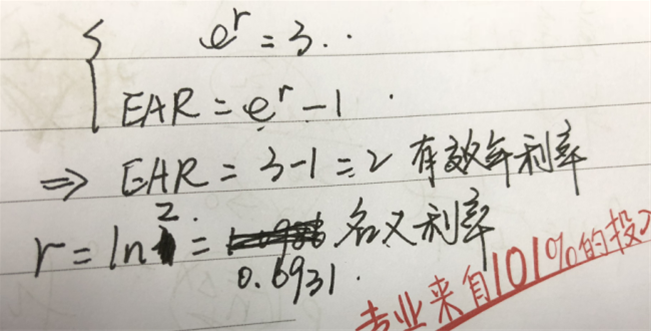 e^r = 3..
EAR = e^r - 1 .
⇒ EAR = 3-1 = 2 有效年利率
r = ln 2 = 名义利率
0.6931.
专业来自101%的投入